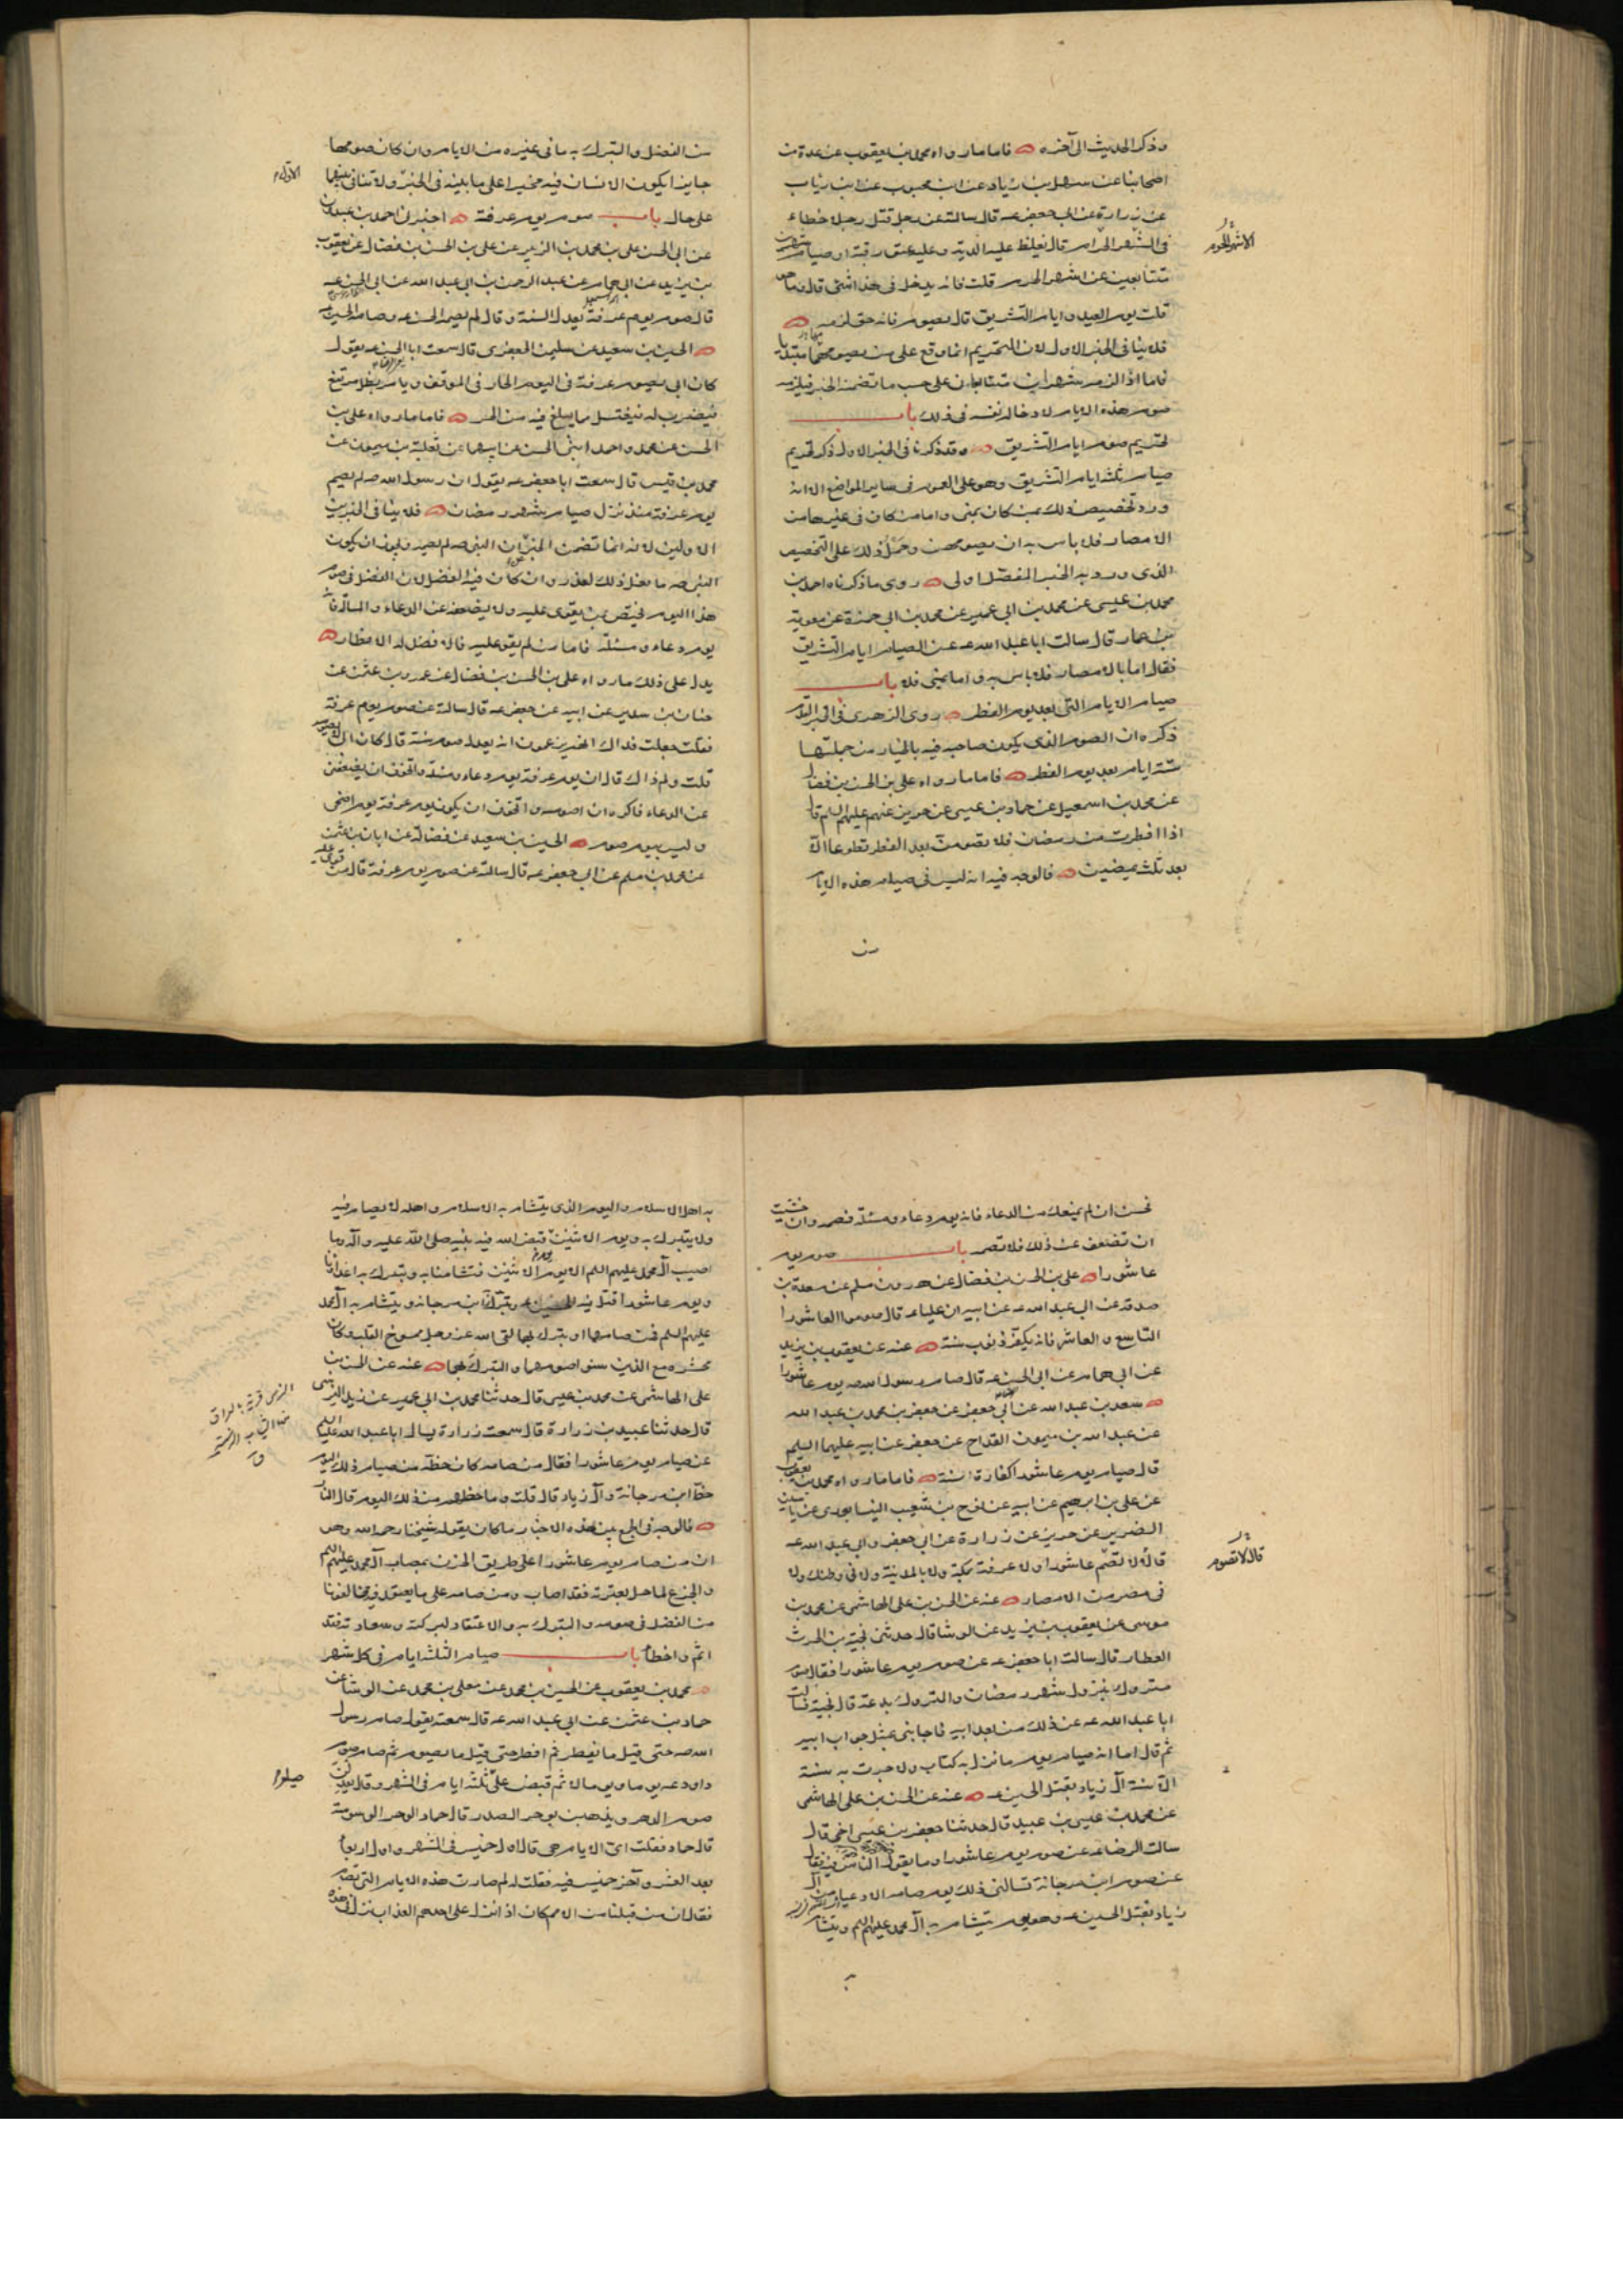 وذكر الحديث الى آخره فاما ما رواه محمد بن يعقوب عن عدة من
اصحابنا عن سهل بن زياد عن ابن محبوب عن ابن رئاب
عن زرارة عن ابى جعفر ع قال سالته عن رجل قتل رجلا خطاء
فى الشهر الحرام قال تغلظ عليه الدية وعليه عتق رقبة او صيام شهرين
متتابعين من اشهر الحرم قلت فانه يدخل فى هذا شئ قال ما هو
قلت يوم العيد وايام التشريق قال يصوم فانه حق لزمه
فلا ينافى الخبر الاول لان التحريم انما وقع على من يصومها مبتديا
فاما اذا لزمه شهران متتابعان على حسب ما تضمنه الخبر فيلزمه
صوم هذه الايام لادخاله نفسه فى ذلك باب
تحريم صوم ايام التشريق وقد ذكرنا فى الخبر الاول ذكر تحريم
صيام ثلثة ايام التشريق وهو على العموم فى ساير المواضع الا انه
ورد تخصيص ذلك بمن كان بمنى واما من كان فى غيرها من
الامصار فلا باس به ان يصومهن وحمل ذلك على التخصيص
الذى ورد به الخبر المفصل اولى روى ما ذكرناه احمد بن
محمد بن عيسى عن محمد بن ابى عمير عن محمد بن ابى حمزة عن معوية
بن عمار قال سالت ابا عبد الله ع عن الصيام ايام التشريق
فقال اما بالامصار فلا باس به واما بمنى فلا باب
صيام الايام التى بعد يوم الفطر روى الزهرى فى الخبر الذى
ذكره ان الصوم الذى يكون صاحبه فيه بالخيار من جملتها
ستة ايام بعد يوم الفطر فاما ما رواه على بن الحسن بن فضال
عن محمد بن اسمعيل عن حماد بن عيسى عن حريز عنهم عليهم السلم قال
اذا افطرت من رمضان فلا تصومن بعد الفطر تطوعا الا
بعد ثلث يمضين فالوجه فيه انه ليس فى صيام هذه الايام
من
الاشهر الحرم
من الفضل والتبرك به ما فى غيره من الايام وان كان صومها
جايزا يكون الانسان فيه مخيرا على ما بينه فى الخبر ولا تنافى بينهما
على حال باب صوم يوم عرفة اخبرنى احمد بن عبدون
عن ابى الحسن على بن محمد بن الزبير عن على بن الحسن بن فضال عن يعقوب
بن يزيد عن ابى همام عن عبد الرحمن بن ابى عبد الله عن ابى الحسن ع
قال صوم يوم عرفة يعدل السنة وقال لم يصمه الحسن ع وصامه الحسين ع
الحسين بن سعيد عن سليمن الجعفرى قال سمعت ابا الحسن ع يقول
كان ابى يصوم عرفة فى اليوم الحار فى الموقف ويامر بظل مرتفع
فيضرب له فيغتسل مما يبلغ فيه من الحر فاما ما رواه على بن
الحسن عن محمد واحمد ابنى الحسن عن ابيهما عن ثعلبة بن ميمون عن
محمد بن قيس قال سمعت ابا جعفر ع يقول ان رسول الله ص لم يصم
يوم عرفة منذ نزل صيام شهر رمضان فلا ينافى الخبرين
الاولين لانه انما تضمن الخبر ان النبى ص لم يصم ويجوز ان يكون
النبى ص ما فعل ذلك لعذر وان كان فيه الفضل لان الفضل فى صوم
هذا اليوم يختص بمن يقوى عليه ولا يضعفه عن الدعاء والمسالة فانه
يوم دعاء ومسئلة فاما من لم يقو عليه فالافضل له الافطار
يدل على ذلك ما رواه على بن الحسن بن فضال عن عمرو بن عثمن عن
حنان بن سدير عن ابيه عن جعفر ع قال سالته عن صوم يوم عرفة
فقلت جعلت فداك انهم يزعمون انه يعدل صوم سنة قال كان ابى لا يصومه
قلت ولم ذاك قال ان يوم عرفة يوم دعاء ومسئلة واتخوف ان يضعفنى
عن الدعاء فاكره ان اصومه واتخوف ان يكون يوم عرفة يوم اضحى
وليس بيوم صوم الحسين بن سعيد عن فضالة عن ابان بن عثمن
عن محمد بن مسلم عن ابى جعفر ع قال سالته عن صوم يوم عرفة قال من قوى عليه
الاولة م
فحسن ان لم يمنعك من الدعاء فانه يوم دعاء ومسئلة فصمه وان خشيت
ان تضعف عن ذلك فلا تصم باب صوم يوم
عاشورا على بن الحسن بن فضال عن هرون بن مسلم عن مسعدة بن
صدقة عن ابى عبد الله ع عن ابيه ان عليا ع قال صوموا العاشورا
التاسع والعاشر فانه يكفر ذنوب سنة عنه عن يعقوب بن يزيد
عن ابى همام عن ابى الحسن ع قال صام رسول الله ص يوم عاشورا
سعد بن عبد الله عن ابى جعفر عن جعفر بن محمد بن عبد الله
عن عبد الله بن ميمون القداح عن جعفر عن ابيه عليهما السلم
قال صيام يوم عاشورا كفارة سنة فاما ما رواه محمد بن يعقوب
عن على بن ابرهيم عن ابيه عن نوح بن شعيب النيسابورى عن ياسين
الضرير عن حريز عن زرارة عن ابى جعفر وابى عبد الله ع
قالا لا تصم عاشورا ولا عرفة بمكة ولا بالمدينة ولا فى وطنك ولا
فى مصر من الامصار عنه عن الحسن بن على الهاشمى عن محمد بن
موسى عن يعقوب بن يزيد عن الوشا قال حدثنى نجية بن الحرث
العطار قال سالت ابا جعفر ع عن صوم يوم عاشورا فقال صوم
متروك بنزول شهر رمضان والمتروك بدعة قال نجية فسالت
ابا عبد الله ع عن ذلك من بعد ابيه فاجابنى بمثل جواب ابيه
ثم قال اما انه صيام يوم ما نزل به كتاب ولا جرت به سنة
الا سنة آل زياد بقتل الحسين ع عنه عن الحسن بن على الهاشمى
عن محمد بن عيسى بن عبيد قال حدثنا جعفر بن عيسى اخى قال
سالت الرضا ع عن صوم يوم عاشورا وما يقول الناس فيه فقال
عن صوم ابن مرجانة تسالنى ذلك يوم صامه الادعياء من آل
زياد بقتل الحسين ع وهو يوم يتشام به آل محمد عليهم السلم ويتشام
قال لا تصوم
به اهل الاسلام واليوم الذى يتشام به الاسلام واهله لا يصام فيه
ولا يتبرك به ويوم الاثنين قبض الله فيه نبيه صلى الله عليه وآله وما
اصيب آل محمد عليهم السلم الا يوم الاثنين فتشامنا به وتبرك به اعداؤنا
ويوم عاشورا قتل فيه الحسين ع وتبرك به ابن مرجانة ويتشام به آل محمد
عليهم السلم فمن صامها او تبرك بها لقى الله عز وجل ممسوخ القلب وكان
محشره مع الذين سنوا صومهما والتبرك بها عنه عن الحسن بن
على الهاشمى عن محمد بن عيسى قال حدثنا محمد بن ابى عمير عن زيد النرسى
قال حدثنا عبيد بن زرارة قال سمعت زرارة يسال ابا عبد الله عليه السلم
عن صيام يوم عاشورا فقال من صامه كان حظه من صيام ذلك اليوم
حظ ابن مرجانة وآل زياد قال قلت وما حظهم من ذلك اليوم قال النار
فالوجه فى الجمع بين هذه الاخبار ما كان يقوله شيخنا رحمه الله وهو
ان من صام يوم عاشورا على طريق الحزن بمصاب آل محمد عليهم السلم
والجزع لما حل بعترته فقد اصاب ومن صامه على ما يعتقد فيه مخالفونا
من الفضل فى صومه والتبرك به والاعتقاد لبركته وسعادته فقد
اثم واخطأ باب صيام الثلثة ايام فى كل شهر
محمد بن يعقوب عن الحسين بن محمد عن معلى بن محمد عن الوشا عن
حماد بن عثمن عن ابى عبد الله ع قال سمعته يقول صام رسول
الله ص حتى قيل ما يفطر ثم افطر حتى قيل ما يصوم ثم صام صوم
داود ع يوما ويوما لا ثم قبض على ثلثة ايام فى الشهر وقال يعدلن
صوم الدهر ويذهبن بوحر الصدر قال حماد الوحر الوسوسة
قال حماد فقلت اى الايام هى قال اول خميس فى الشهر واول اربعا
بعد العشر وآخر خميس فيه فقلت له لم صارت هذه الايام التى تصام
فقال ان من قبلنا من الامم كان اذا نزل على احدهم العذاب نزل فى هذه
النرس قرية بالعراق
منها الثياب النرسية
ق